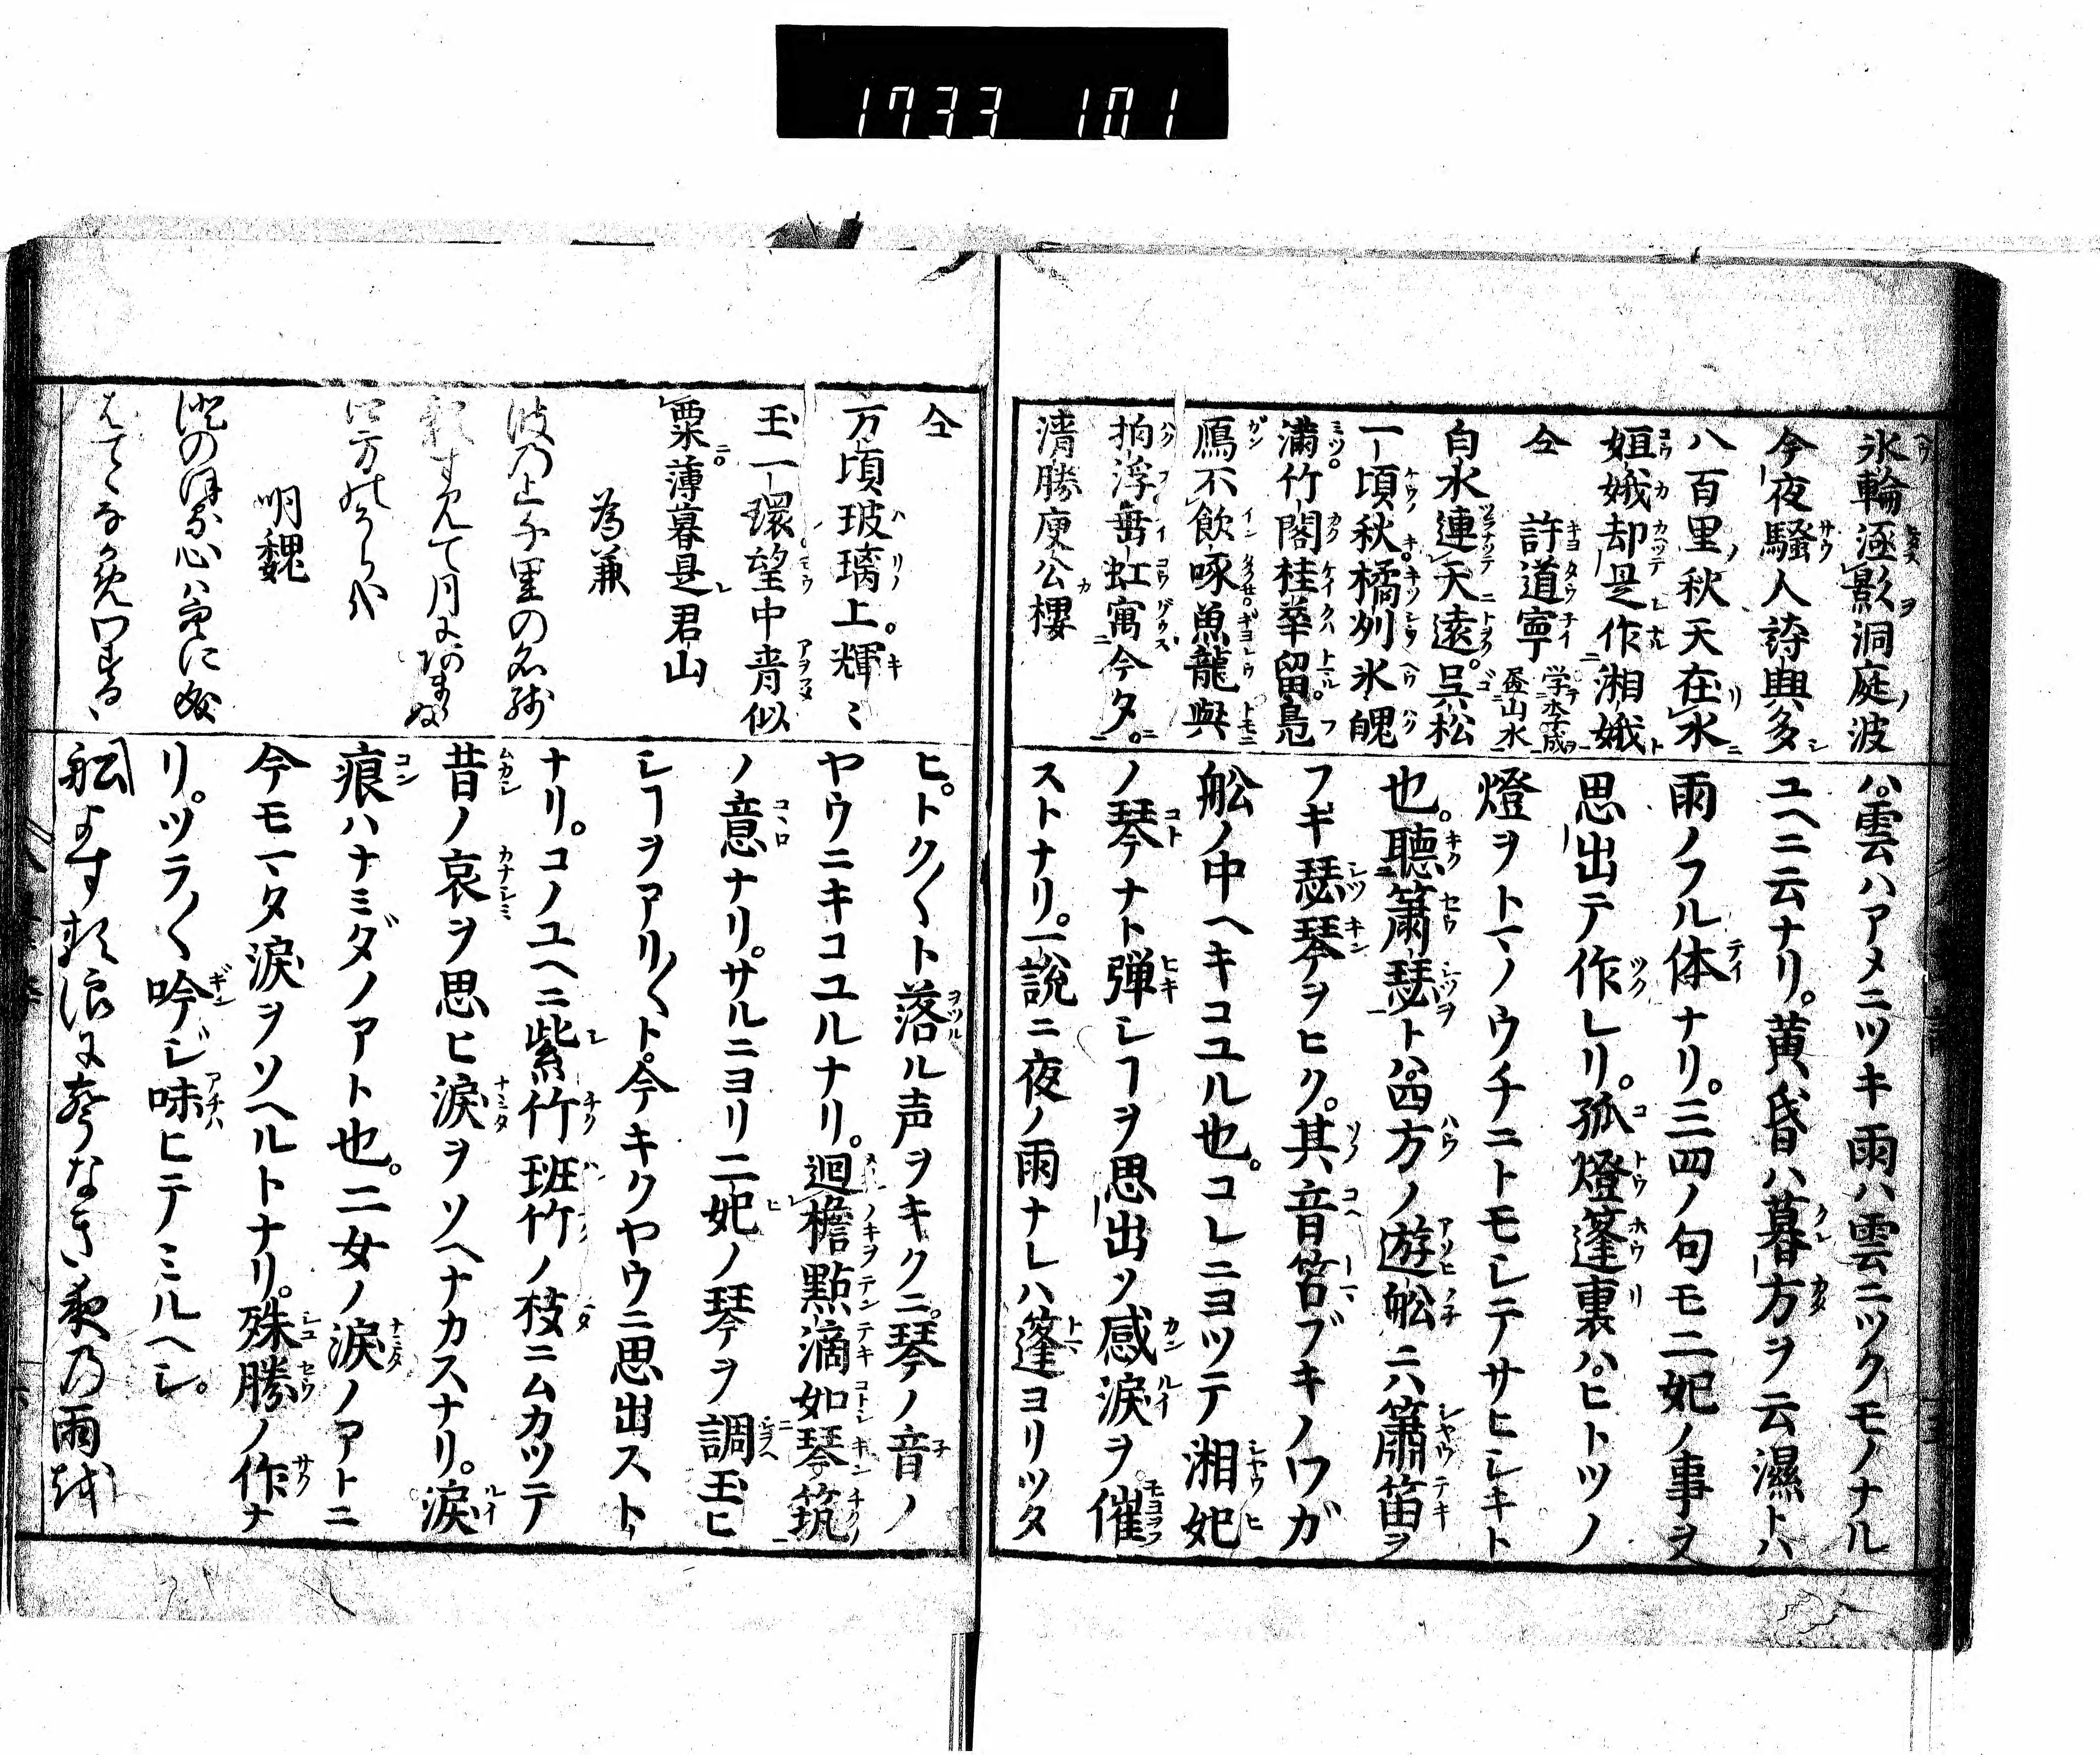 1733 101
氷輪逐影洞庭波
今夜騒人詩興多
八百里秋天在水
姮娥却是作湘娥
仝 許道寧 学李成畫山水
白水連天遠呉松
一頃秋橘刕氷魄
満竹閣桂華留鳧
鴈不飲啄魚龍與
拍浮垂虹寓今夕
清勝庾公樓
ハ。雲ハアメニツキ雨ハ雲ニツクモノナル
ユヘニ云ナリ。黄昏ハ暮方ヲ云濕トハ
雨ノフル体ナリ。三四ノ句モ二妃ノ事ヲ
思出テ作レリ。孤燈篷裏ハ。ヒトツノ
燈ヲトマノウチニトモレテサヒシキト
也。聴簫瑟トハ。四方ノ遊舩ニ六簫笛ヲ
フギ瑟琴ヲヒク。其音笘ブキノワガ
舩ノ中ヘキコユル也。コレニヨツテ湘妃
ノ琴ナト弾シヿヲ思出ソ感涙ヲ。催
ストナリ。一説ニ夜ノ雨ナレハ篷ヨリツタ
仝
万頃玻璃上輝〻
玉一環望中青似
粟薄暮是君山
為兼
波乃上千里の名残
月
四方
明魏
心ハ
ヒ。トク〱ト落ル声ヲキクニ。琴ノ音ノ
ヤウニキコユルナリ。廻檐點滴如琴筑
ノ意ナリ。サルニヨリ二妃ノ琴ヲ調玉ヒ
シヿヲアリ〱ト。今キクヤウニ思出スト
ナリ。コノユヘニ紫竹班竹ノ枝ニムカツテ
昔ノ哀ヲ思ヒ涙ヲソヘナカスナリ。涙
痕ハナミダノアト也。二女ノ涙ノアトニ
今モマタ涙ヲソヘルトナリ。殊勝ノ作ナ
リ。ツラ〱吟ジ味ヒテミルヘシ。
舩よす類浪に声なき夜乃雨越